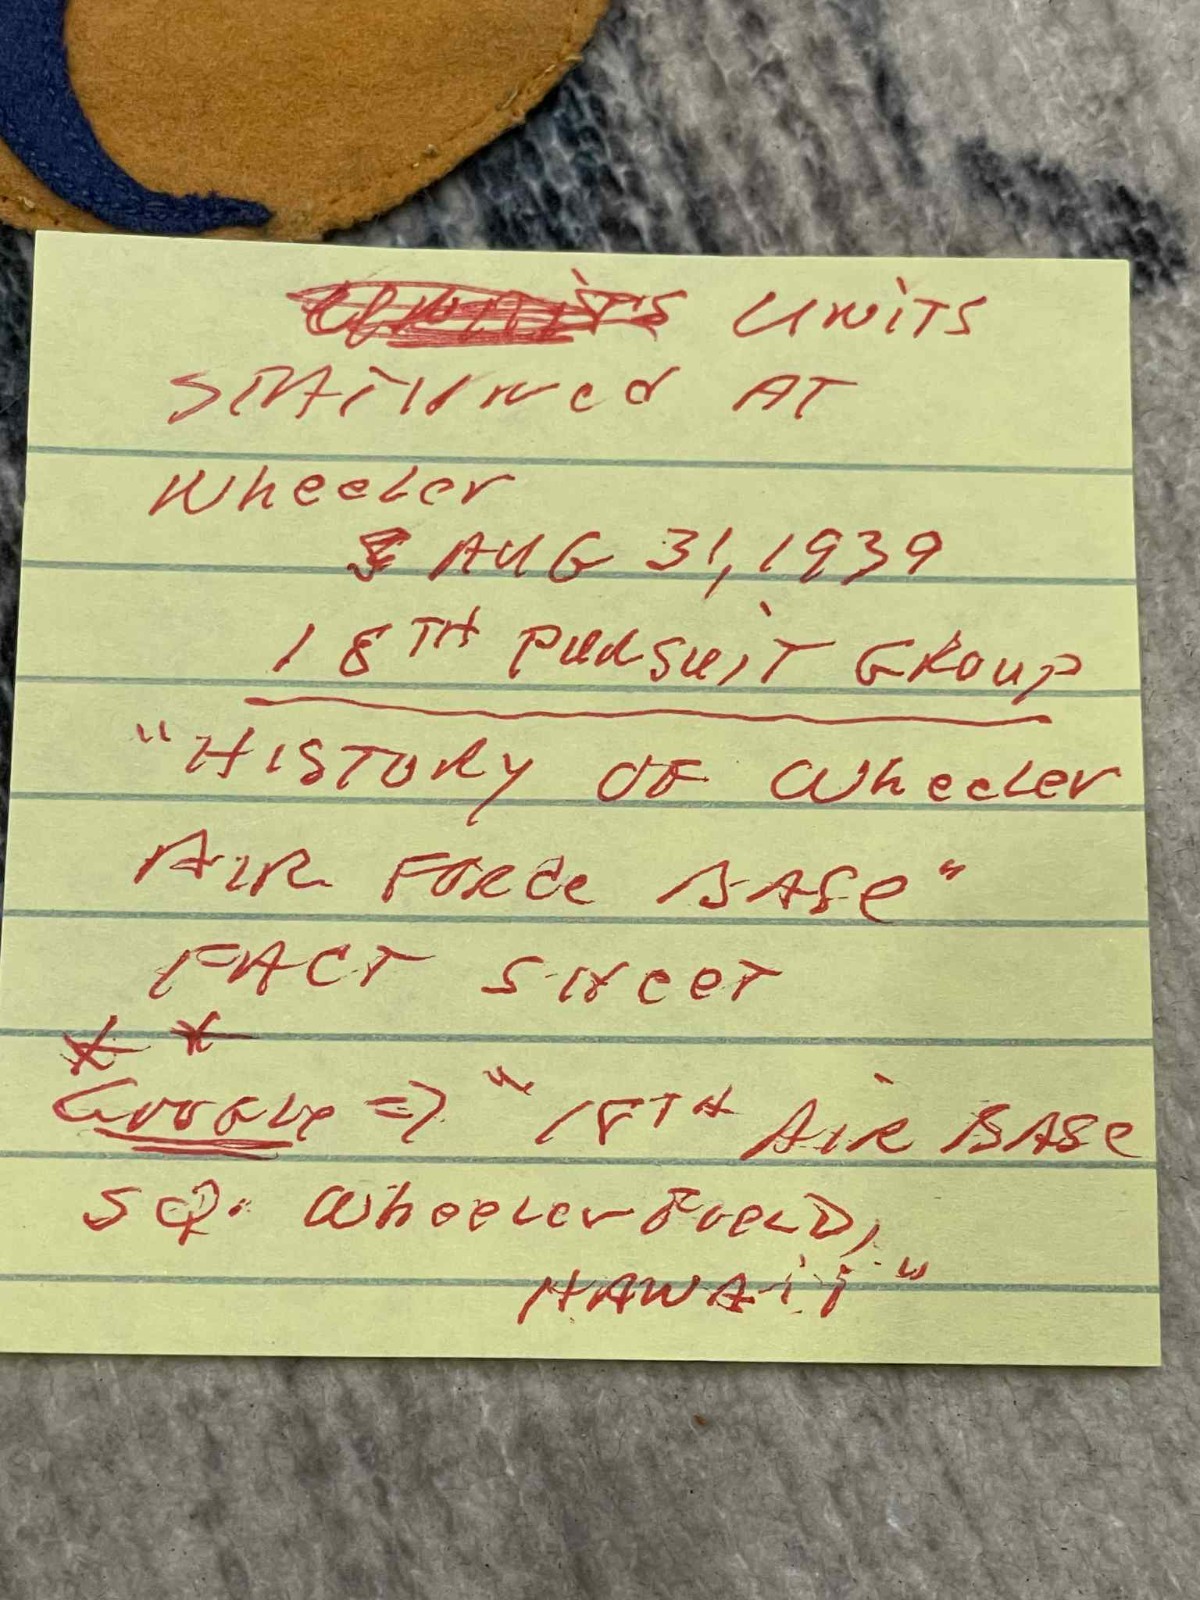 Units
Stationed AT
Wheeler
AUG 31, 1939
18TH PURSUiT GROUP
"HISTORY OF Wheeler
AIR FORCe BASe"
FACT SHeeT
* *
Google => "18TH AiR BASe
SQ. Wheeler FieLD,
HAWAii"